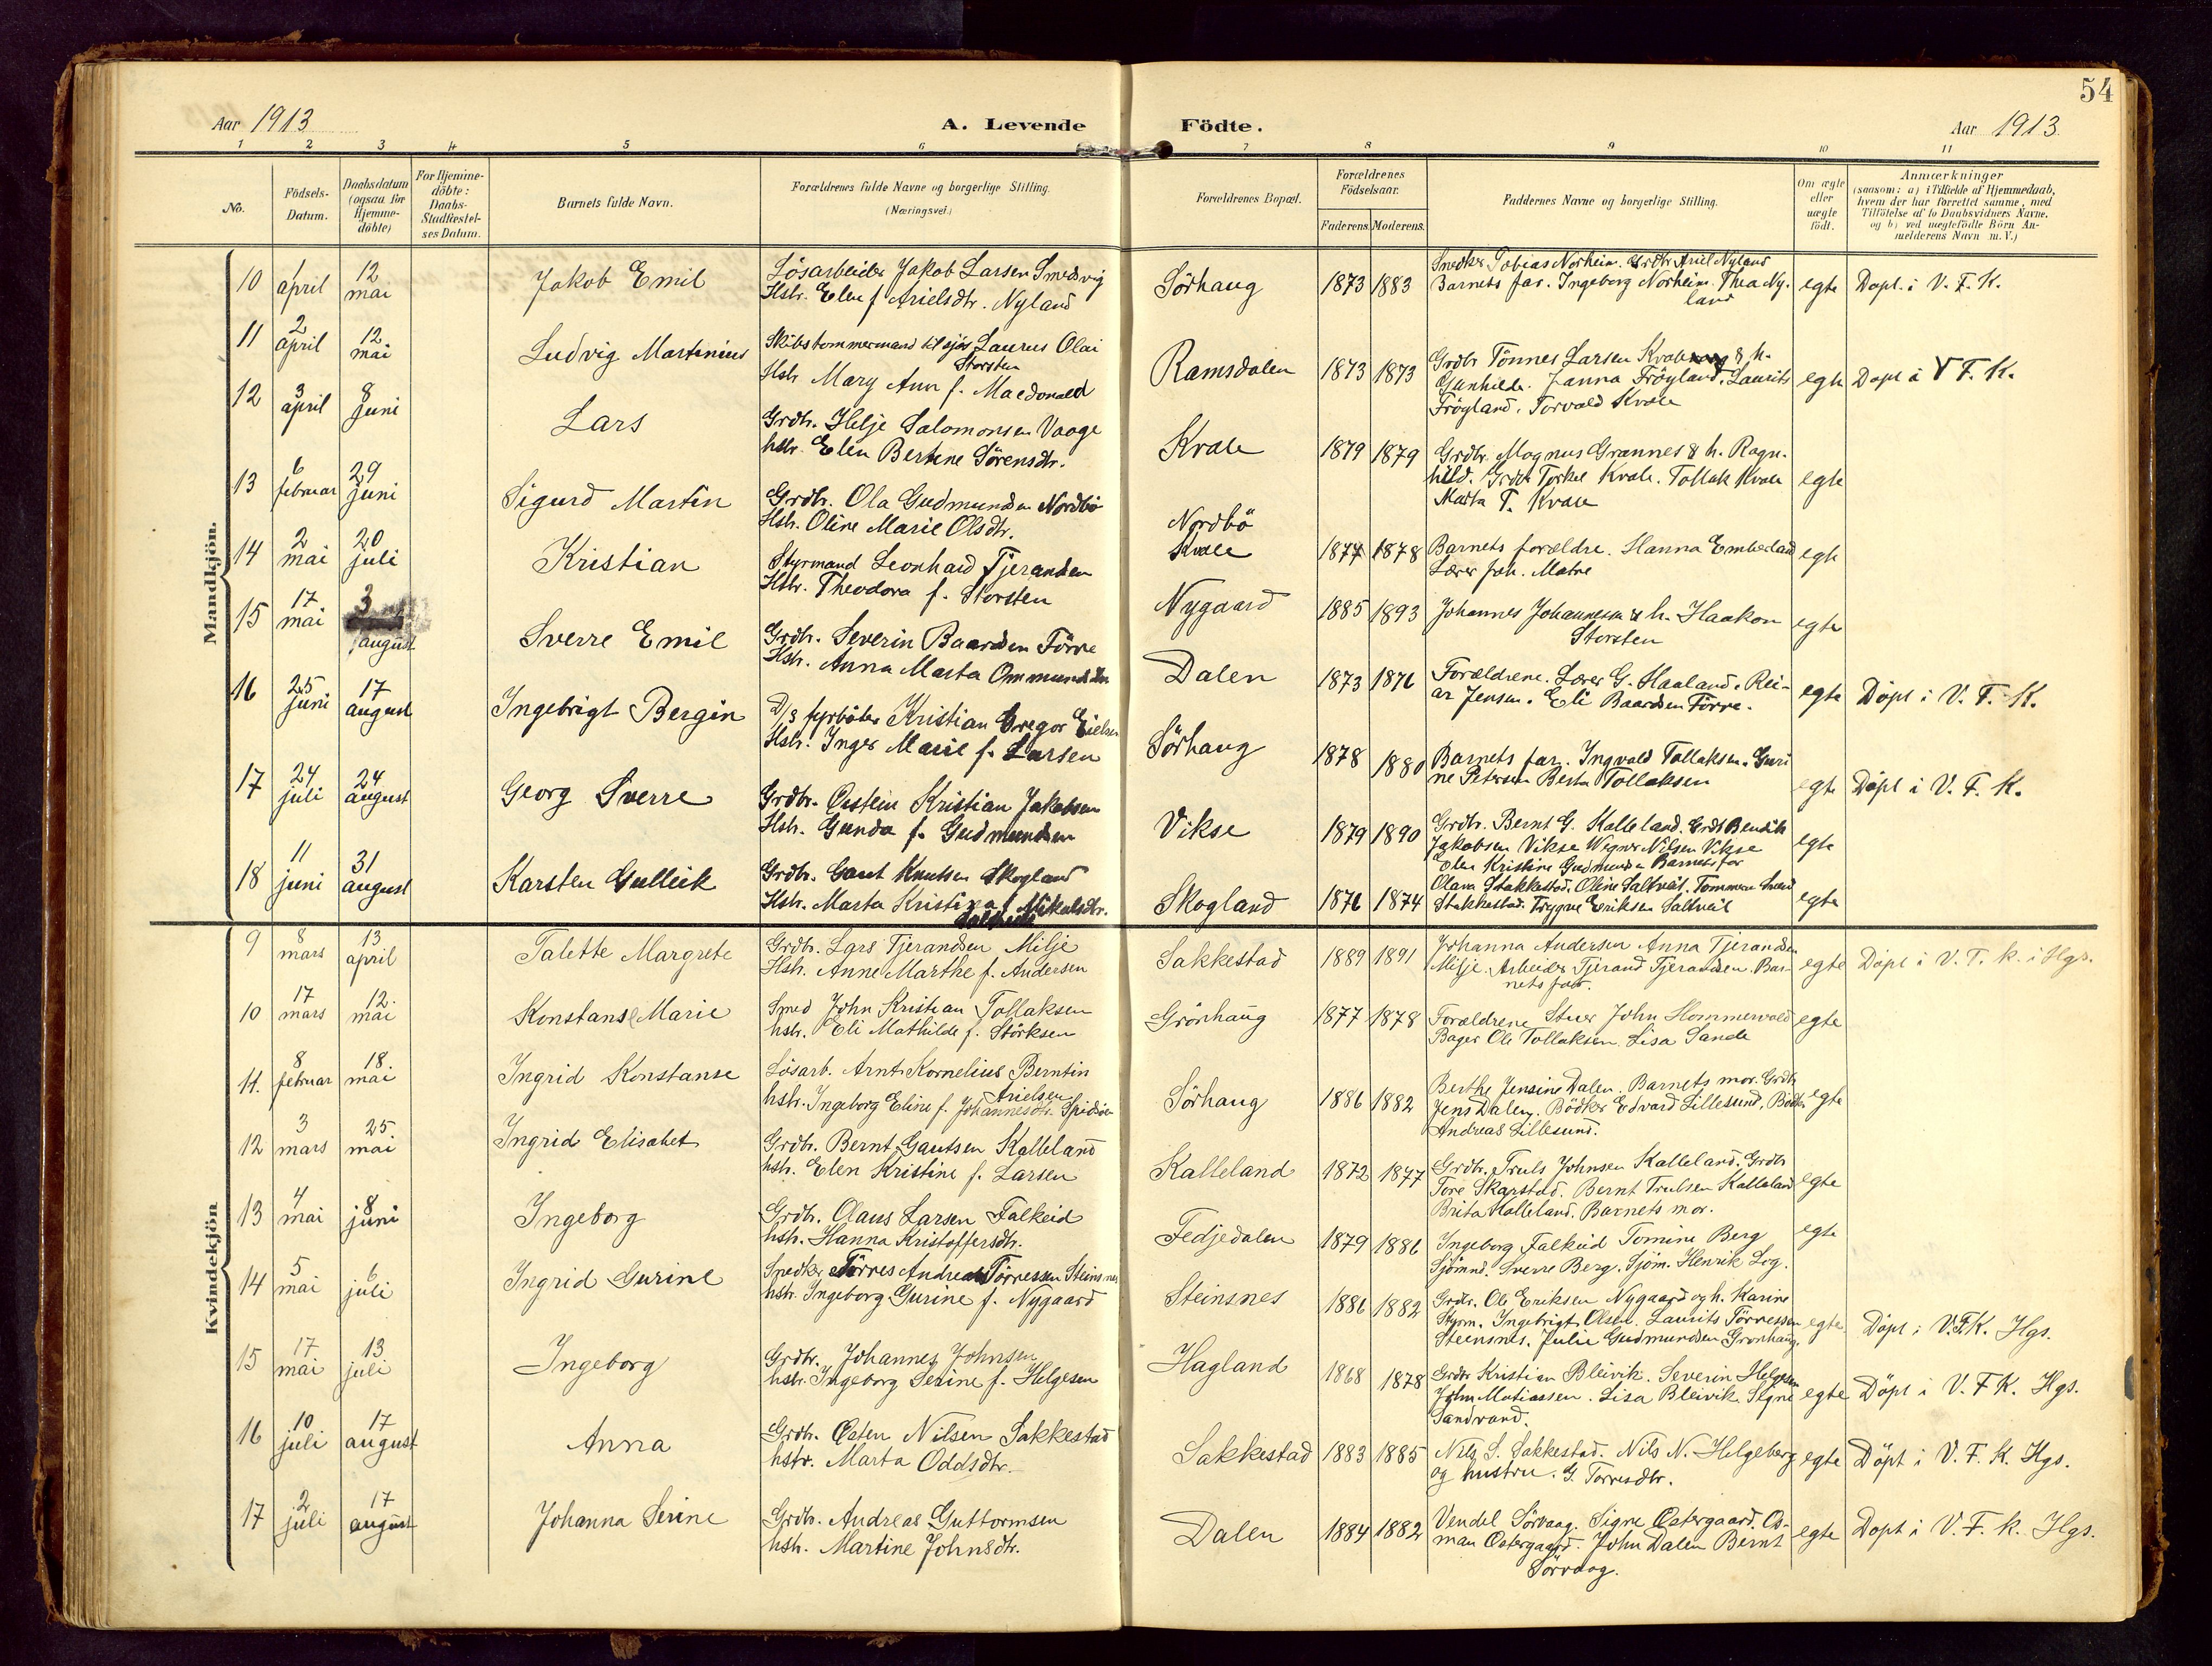 54
Aar 1913
A. Levende Födte.
Aar 1913.
1 2 3 4 5 6 7 8 9 10 11
No.
Födsels-
Datum.
Daabsdatum
(ogsaa for
Hjemme-
döbte)
For Hjemme-
döbte:
Daabs-
Stadfæstel-
ses Datum.
Barnets fulde Navn.
Forældrenes fulde Navne og borgerlige Stilling.
(Næringsvei.)
Forældrenes Bopæl.
Forældrenes
Födselsaar.
Faderens. Moderens.
Faddernes Navne og borgerlige Stilling.
Om ægte
eller
uægte
födt.
Anmærkninger
(saasom: a) i Tilfælde af Hjemmedaab,
hvem der har forrettet samme, med
Tilföielse af to Daabsvidners Navne,
og b) ved uægtefödte Börn An-
melderens Navn m. V.)
Mandkjön.
10 1 april 12 mai Jakob Emil
Lösarbeider Jakob Larsen Smedsvig
Hstr. Elen f. Arielsdtr. Nyland
Sörhaug 1873 1883
Snedker Tobias Norheim. Grdbr Ariel Nyland
Barnets far. Ingeborg Norheim. Thea Ny-
land
egte Döpt. i V. F. K.
11 2 april 12 mai Ludvig Martinius
Skibstømmermand til sjøs Laurus Olai
Storsten
Hstr Mary Ann f. Macdonald
Ramsdalen 1873 1873
Grdbr Tönnes Larsen Kvale & h.
Gunhild. Janna Fröyland. Laurits
Fröyland. Torvald Kvale
egte Döpt i V F. K.
12 3 april 8 juni Lars
Grdbr. Helje Salomonsen Vaage
hstr. Elen Bertine Sörensdtr.
Kvale 1879 1879
Grdbr. Magnus Grannes & h. Ragn-
hild. Grdbr Torkel Kvale. Tollak Kvale
Marta T. Kvale
egte
13 6 februar 29 juni Sigurd Martin
Grdbr. Ola Gudmundsen Nordbö
Hstr. Oline Marie Olsdtr.
Nordbö
Kvale 1877 1878
Barnets forældre. Hanna Emberland
Lærer Joh. Matre
egte
14 2 mai 20 juli Kristian
Styrmand Leonhard Tjerandsen
Hstr. Theodora f. Storsten
Nygaard 1885 1893
Johannes Johannessen & h. Haakon
Storsten
egte
15 17 mai 3 august Sverre Emil
Grdbr. Severin Baardsen Förre
Hstr. Anna Marta Ommundsdtr
Dalen 1873 1876
Forældrene. Lærer G. Haaland. Rei-
ar Jensen. Eli Baardsen Förre.
egte Döpt i V. F. K.
16 25 juni 17 august Ingebrigt Bergin
D/s fyrböter Kristian Gregor Eielsen
Hstr. Inger Marie f. Larsen
Sörhaug 1878 1880
Barnets far. Ingvald Tollaksen. Guri
ne Petersen Berta Tollaksen
egte Döpt i V. F. K.
17 24 juli 24 august Georg Sverre
Grdbr. Östein Kristian Jakobsen
Hstr. Gunda f. Gudmundsen
Vikse 1879 1890
Grdbr. Bernt G. Kalleland. Grdbr Bendik
Jakobsen Vikse Wegner Nilsen Vikse
Elen Kristine Gudmundsen Barnets far
egte
18 11 juni 31 august Karsten Gulleik
Grdbr. Gaut Knutsen Skogland
Hstr. Marta Kristina f. Mikalsdtr.
Skogland 1876 1874
Olava Stakkestad. Oline Saltveit. Tommen
Stakkestad. Trygve Eriksen Saltveit
egte
Kvindekjön
9 8 mars 13 april Talette Margrete
Grdbr. Lars Tjerandsen Milje
Hstr. Anne Marthe f. Andersen
Sakkestad 1889 1891
Johanna Andersen Anna Tjerandsen
Milje. Arbeider Tjerand Tjerandsen. Bar-
nets far.
egte Döpt i V. F. K. i Hgs.
10 17 mars 12. mai Konstanse Marie
Smed John Kristian Tollaksen
hstr. Eli Mathilde f. Störksen
Grönhaug 1877 1878
Forældrene Stuer John Hommervold
Bager Ole Tollaksen. Lisa Sande
egte
11. 8 februar 18. mai Ingrid Konstanse
Lösarb. Arnt Kornelius Berntin
Arielsen
hstr. Ingeborg Eline f. Johannesdtr. Spidsöen
Sörhaug 1886 1882
Berthe Jensine Dalen. Barnets mor. Grdb
Jens Dalen. Bödker Edvard Lillesund, Bödker
Andreas Lillesund.
egte
12 3 mars 25 mai Ingrid Elisabet
Grdbr. Bernt Gautsen Kalleland
hstr. Elen Kristine f. Larsen
Kalleland 1872 1877
Grdbr. Truls Johnsen Kalleland. Grdbr
Tore Skarstad. Bernt Trulsen Kalleland
Brita Kalleland. Barnets mor.
egte
13 4 mai 8 juni Ingeborg
Grdbr. Olaus Larsen Falkeid
hstr. Hanna Kristoffersdtr.
Fedjedalen 1879 1886
Ingeborg Falkeid Tomine Berg
Sjömnd. Sverre Berg. Sjöm. Henrik Log.
egte
14 5 mai 6 juli Ingrid Gurine
Snedker Törres Andreas Törressen Steinsnes
hstr. Ingeborg Gurine f. Nygaard
Steinsnes 1886 1882
Grdbr. Ole Eriksen Nygaard og h. Karine
Styrm. Ingebrigt Olsen. Laurits Törressen
Steensnes. Julie Gudmundsen Grönhaug.
egte Döpt i V.F.K. Hgs.
15 17 mai 13 juli Ingeborg
Grdbr. Johannes Johnsen
hstr. Ingeborg Serine f. Helgesen
Hagland 1868 1878
Grdbr Kristian Bleivik. Severin Helgesen
John Matiassen. Lisa Bleivik. Signe
Sandvand.
egte Döpt i V. F. K. Hgs.
16 10 juli 17 august Anna
Grdbr. Östen Nilsen Sakkestad
hstr. Marta Oddsdtr.
Sakkestad 1883 1885
Nils S. Sakkestad. Nils N. Helgeberg
og hustru. G. Torresdtr.
egte Döpt i V. F. K. Hgs.
17 2 juli 17 august Johanna Serine
Grdbr. Andreas Guttormsen
hstr. Martine Johnsdtr.
Dalen 1884 1882
Vendel Sörvaag. Signe Östergaard. Os-
man Östergaard. John Dalen Bernt
Sörvaag.
egte Döpt i V. F. K. Hgs.